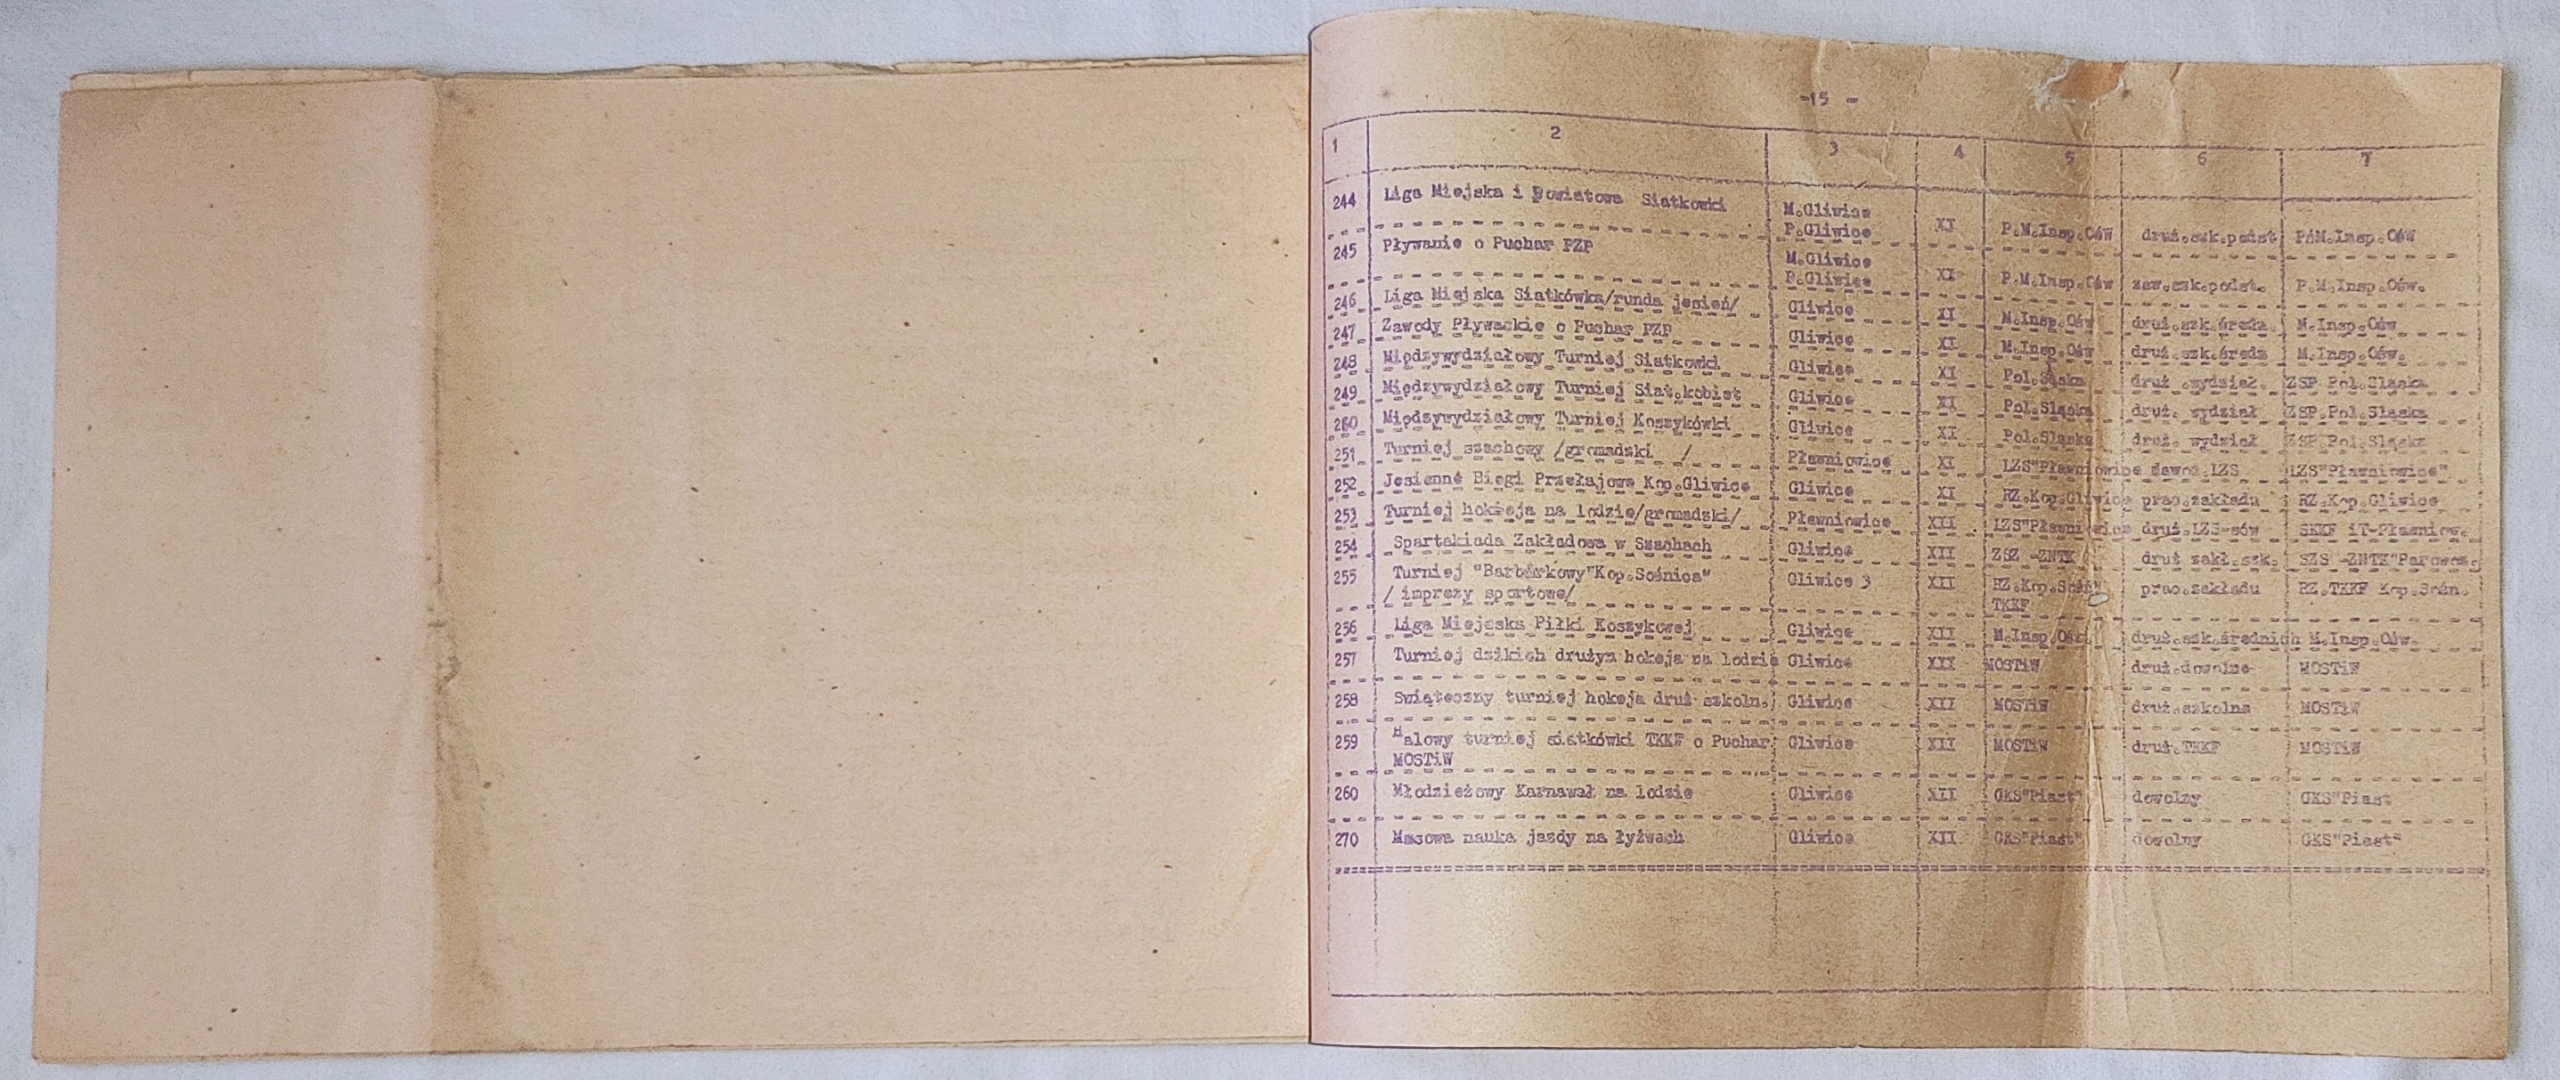 -15 -
1 2 3 4 5 6 7
244 Liga Miejska i Powiatowa Siatkowki M.Gliwice
P.Gliwice XI P.M.Insp.Ośw druż.szk.podst PiM.Insp.Ośw
245 Pływanie o Puchar PZP M.Gliwice
P.Gliwice XI P.M.Insp.Ośw zaw.szk.podst. P.M.Insp.Ośw.
246 Liga Miejska Siatkówka/runda jesień/ Gliwice XI M.Insp.Ośw druż.szk.średn. M.Insp.Ośw
247 Zawody Pływackie o Puchar PZP Gliwice XI M.Insp.Ośw druż.szk.średn M.Insp.Ośw.
248 Międzywydziałowy Turniej Siatkowki Gliwice XI Pol.Śląska druż .wydział. ZSP Pol.Slaska
249 Międzywydziałowy Turniej Siat.kobiet Gliwice XI Pol.Sląska druż. wydział ZSP.Pol.Slaska
280 Międzywydziałowy Turniej Koszykówki Gliwice XI Pol.Sląska druż. wydział ZSP.Pol.Slaska
251 Turniej szachowy /gromadzki / Pławniowice XI LZS"Pławniowice zawod.LZS LZS"Pławniowice"
252 Jesienne Biegi Przełajowe Kop.Gliwice Gliwice XI RZ.Kop.Gliwice prac.zakładu RZ.Kop.Gliwice
253 Turniej hokeja na lodzie/gromadzki/ Pławniowice XII LZS"Pławniowice druż.LZS-sów SKKF iT-Pławniow.
254 Spartakiada Zakładowa w Szachach Gliwice XII ZSZ -ZNTK druż zakł.szk. SZS -ZNTK"Parowoz.
255 Turniej "Barbórkowy"Kop.Sośnica" Gliwice 3 XII RZ.Kop.Sośn" prac.zakładu RZ.TKKF Kop.Sośn.
/ imprezy sportowe/ TKKF
256 Liga Miejska Piłki Koszykowej Gliwice XII M.Insp.Ośw. druż.szk.średnich M.Insp.Ośw.
257 Turniej dzikich drużyn hokeja na lodzie Gliwice XII MOSTiW druż.dowolne MOSTiW
258 Swiąteczny turniej hokeja druż szkoln. Gliwice XII MOSTiW druż.szkolna MOSTiW
259 Halowy turniej siatkówki TKKF o Puchar Gliwice XII MOSTiW druż.TKKF MOSTiW
MOSTiW
260 Młodzieżowy Karnawał na lodzie Gliwice XII GKS"Piast" dowolny GKS"Piast
270 Masowa nauka jazdy na łyżwach Gliwice XII GKS"Piast" dowolny GKS"Piast"